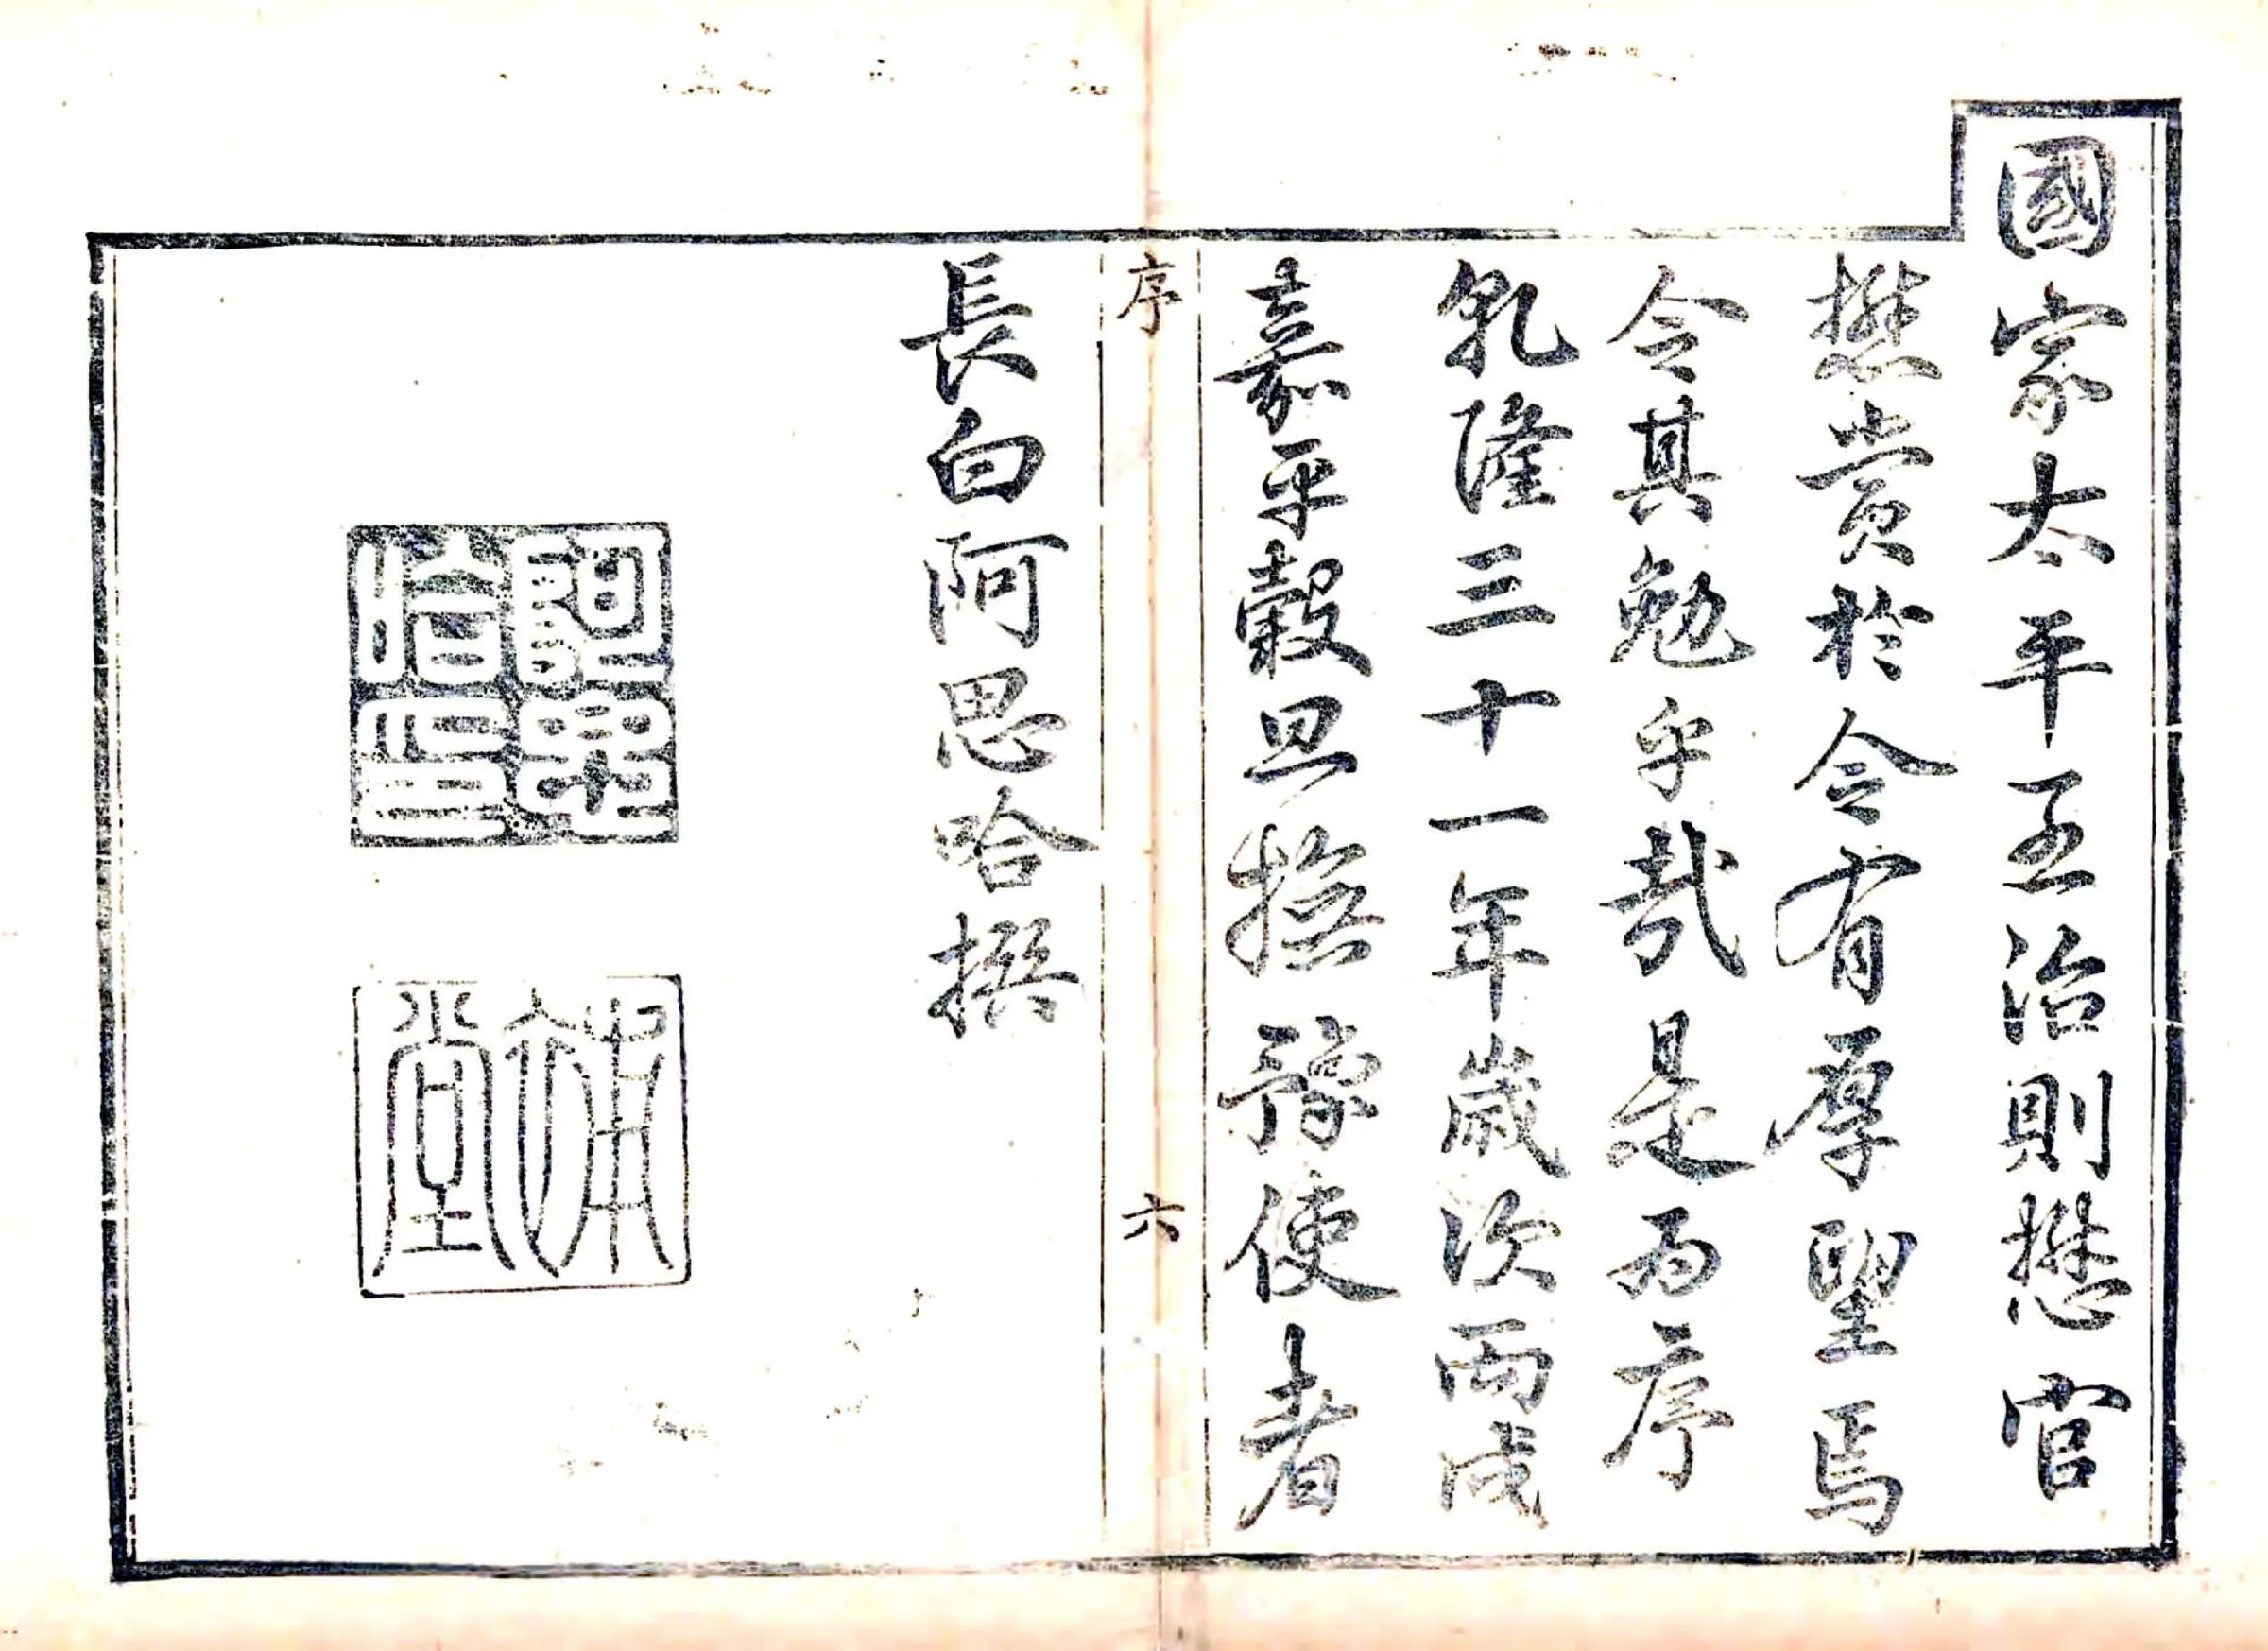 國家太平至治則懋官
懋賞於令有厚望焉
令其勉乎哉是為序
乹隆三十一年歲次丙戌
嘉平穀旦撫豫使者
序
六
長白阿思哈撰
阿思哈印
補堂